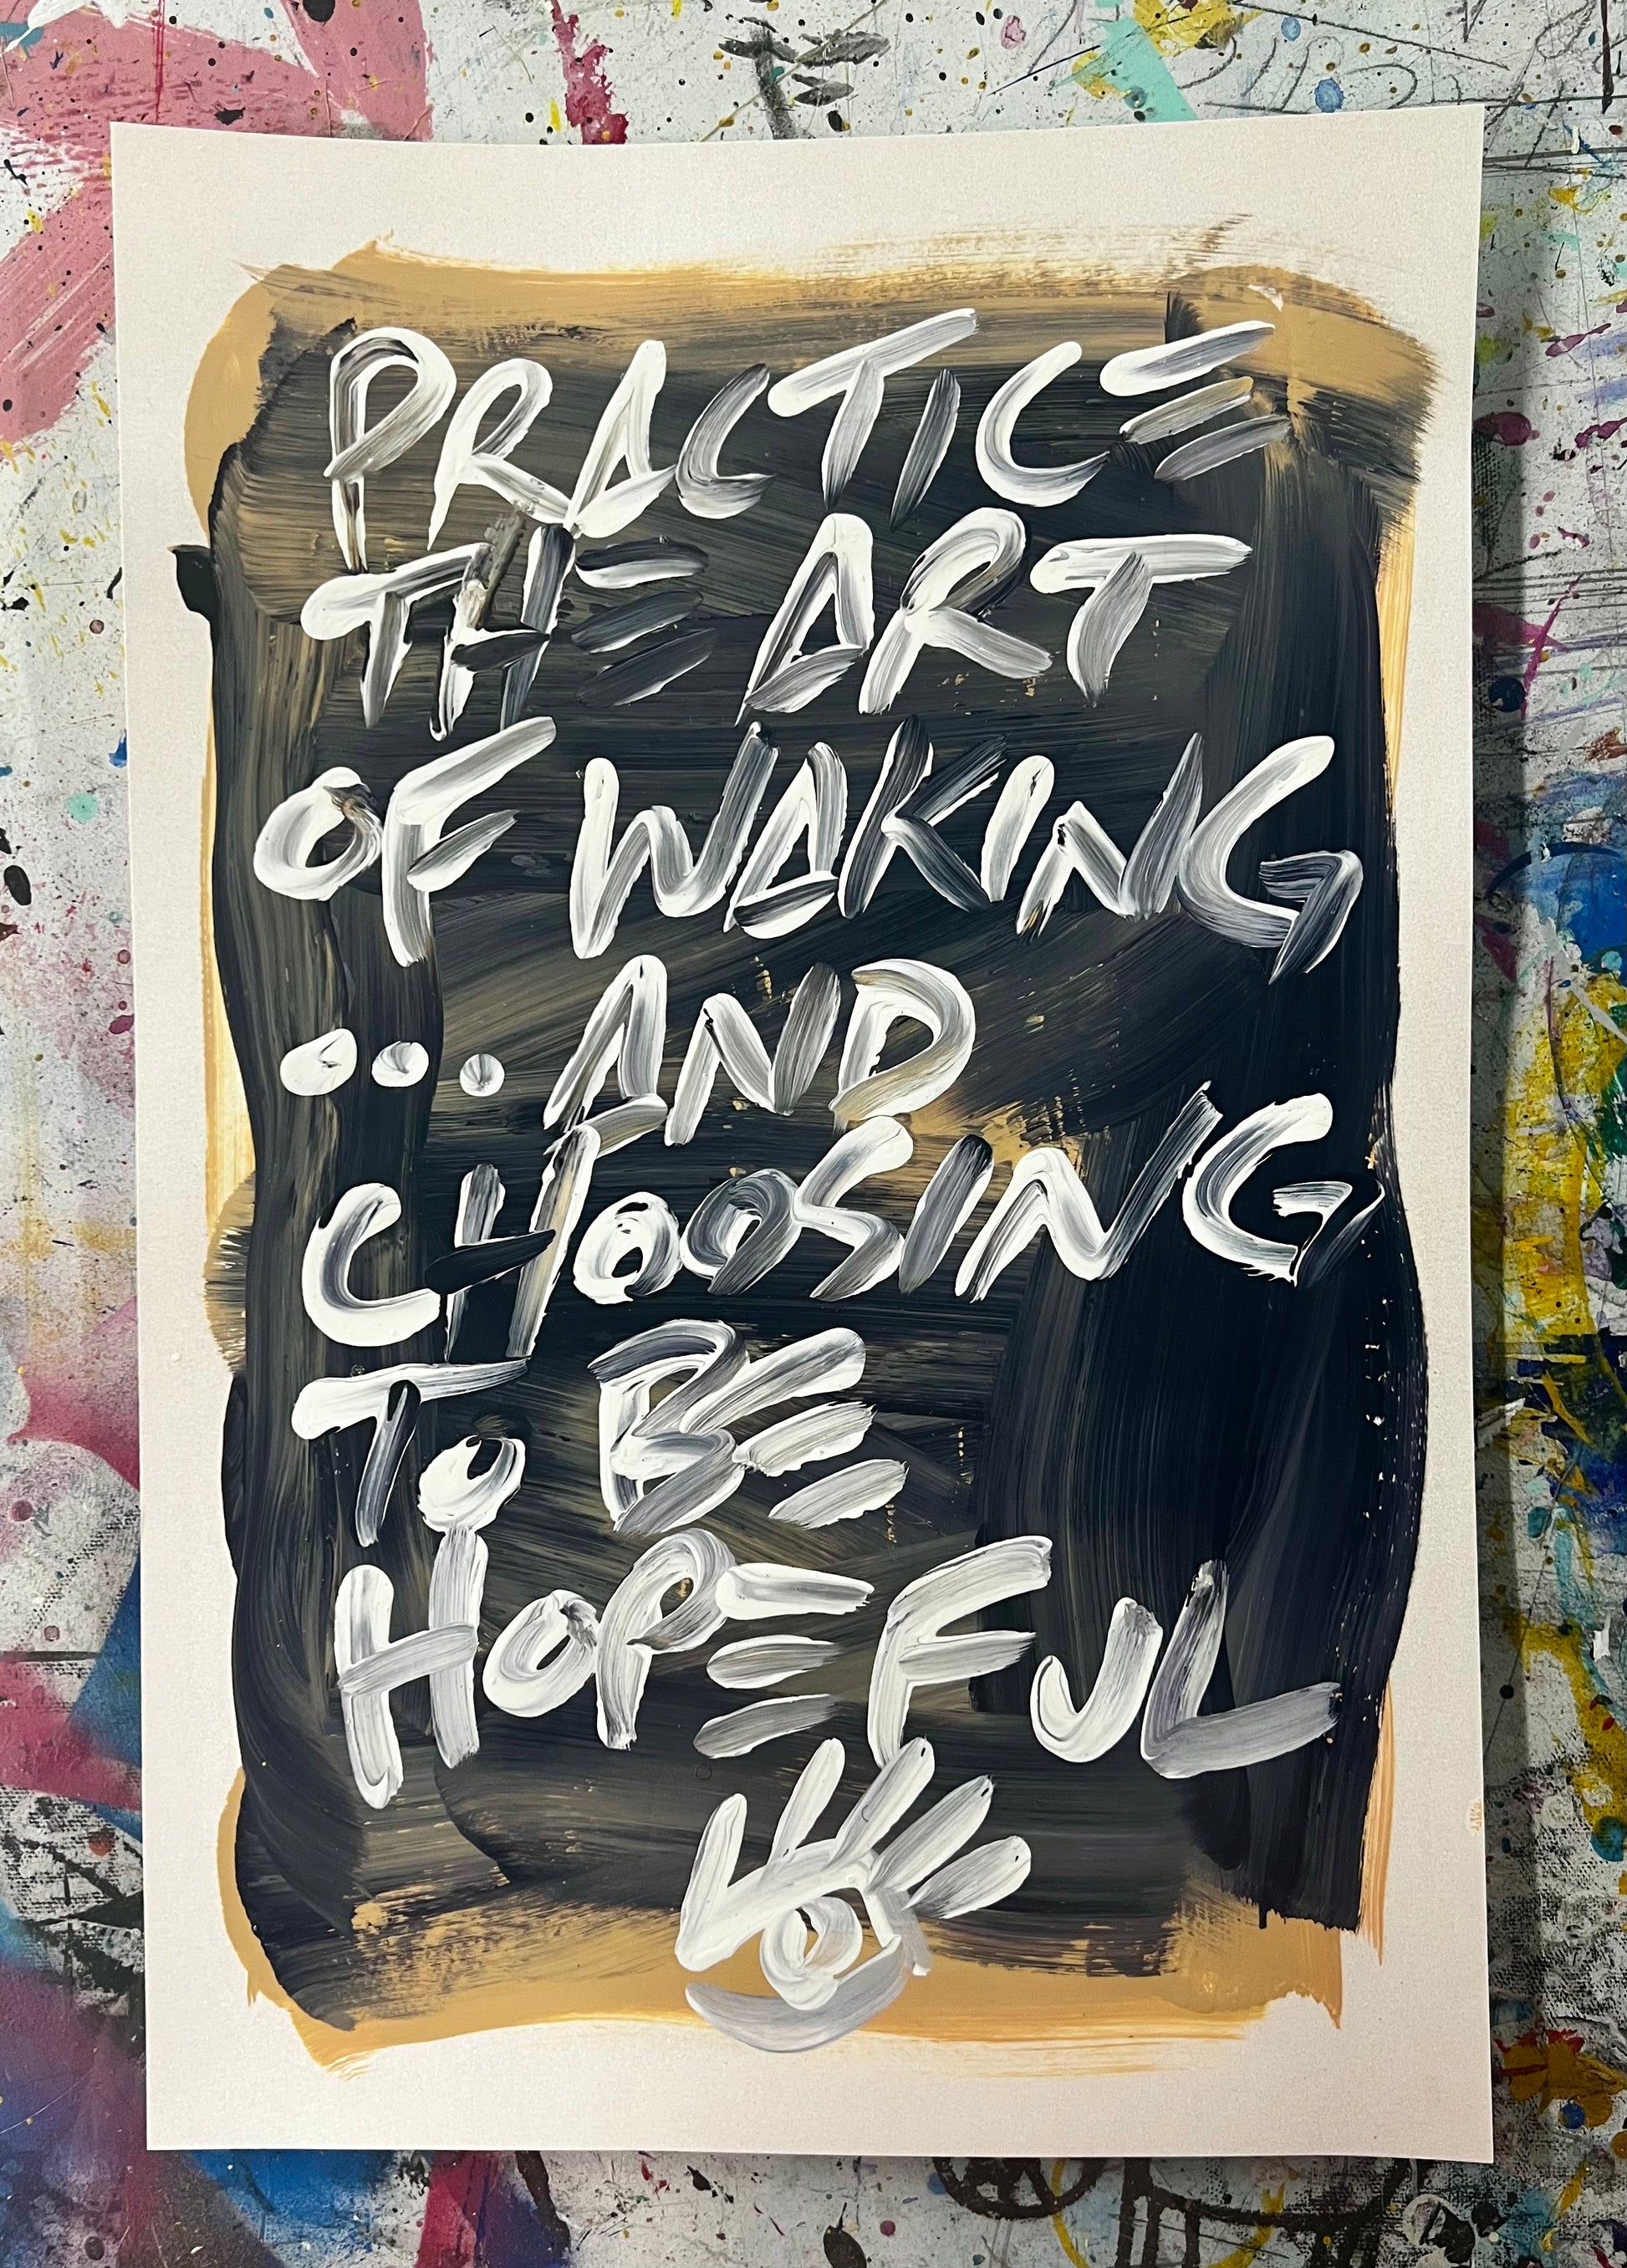 PRACTICE
THE ART
OF WAKING
...AND
CHOOSING
TO BE
HOPEFUL